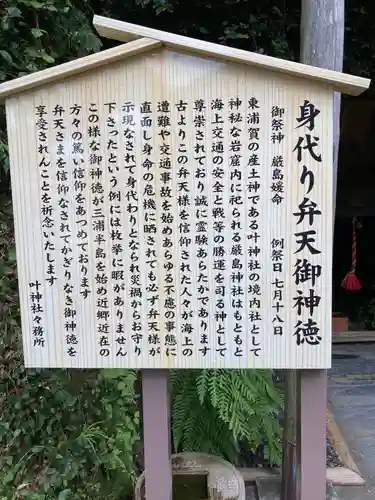 身代わり弁天御神徳
御祭神　厳島媛命　　例祭日　七月十八日
東浦賀の産土神である叶神社の境内社として
神秘な岩窟内に祀られる厳島神社はもともと
海上交通の安全と戦等の勝運を司る神として
尊崇されており誠に霊験あらたかであります
古よりこの弁天様を信仰された人々が海上の
遭難や交通事故を始めあらゆる不慮の事態に
直面し身命の危機に晒されても必ず弁天様が
示現なされて身代わりとなられ災禍からお守り
下さったという例には枚挙に暇がありません
この様な御神徳が三浦半島を始め近郷近在の
方々の篤い信仰をあつめております
弁天さまを信仰なされてかぎりなき御神徳を
享受されんことを祈念いたします
叶神社々務所